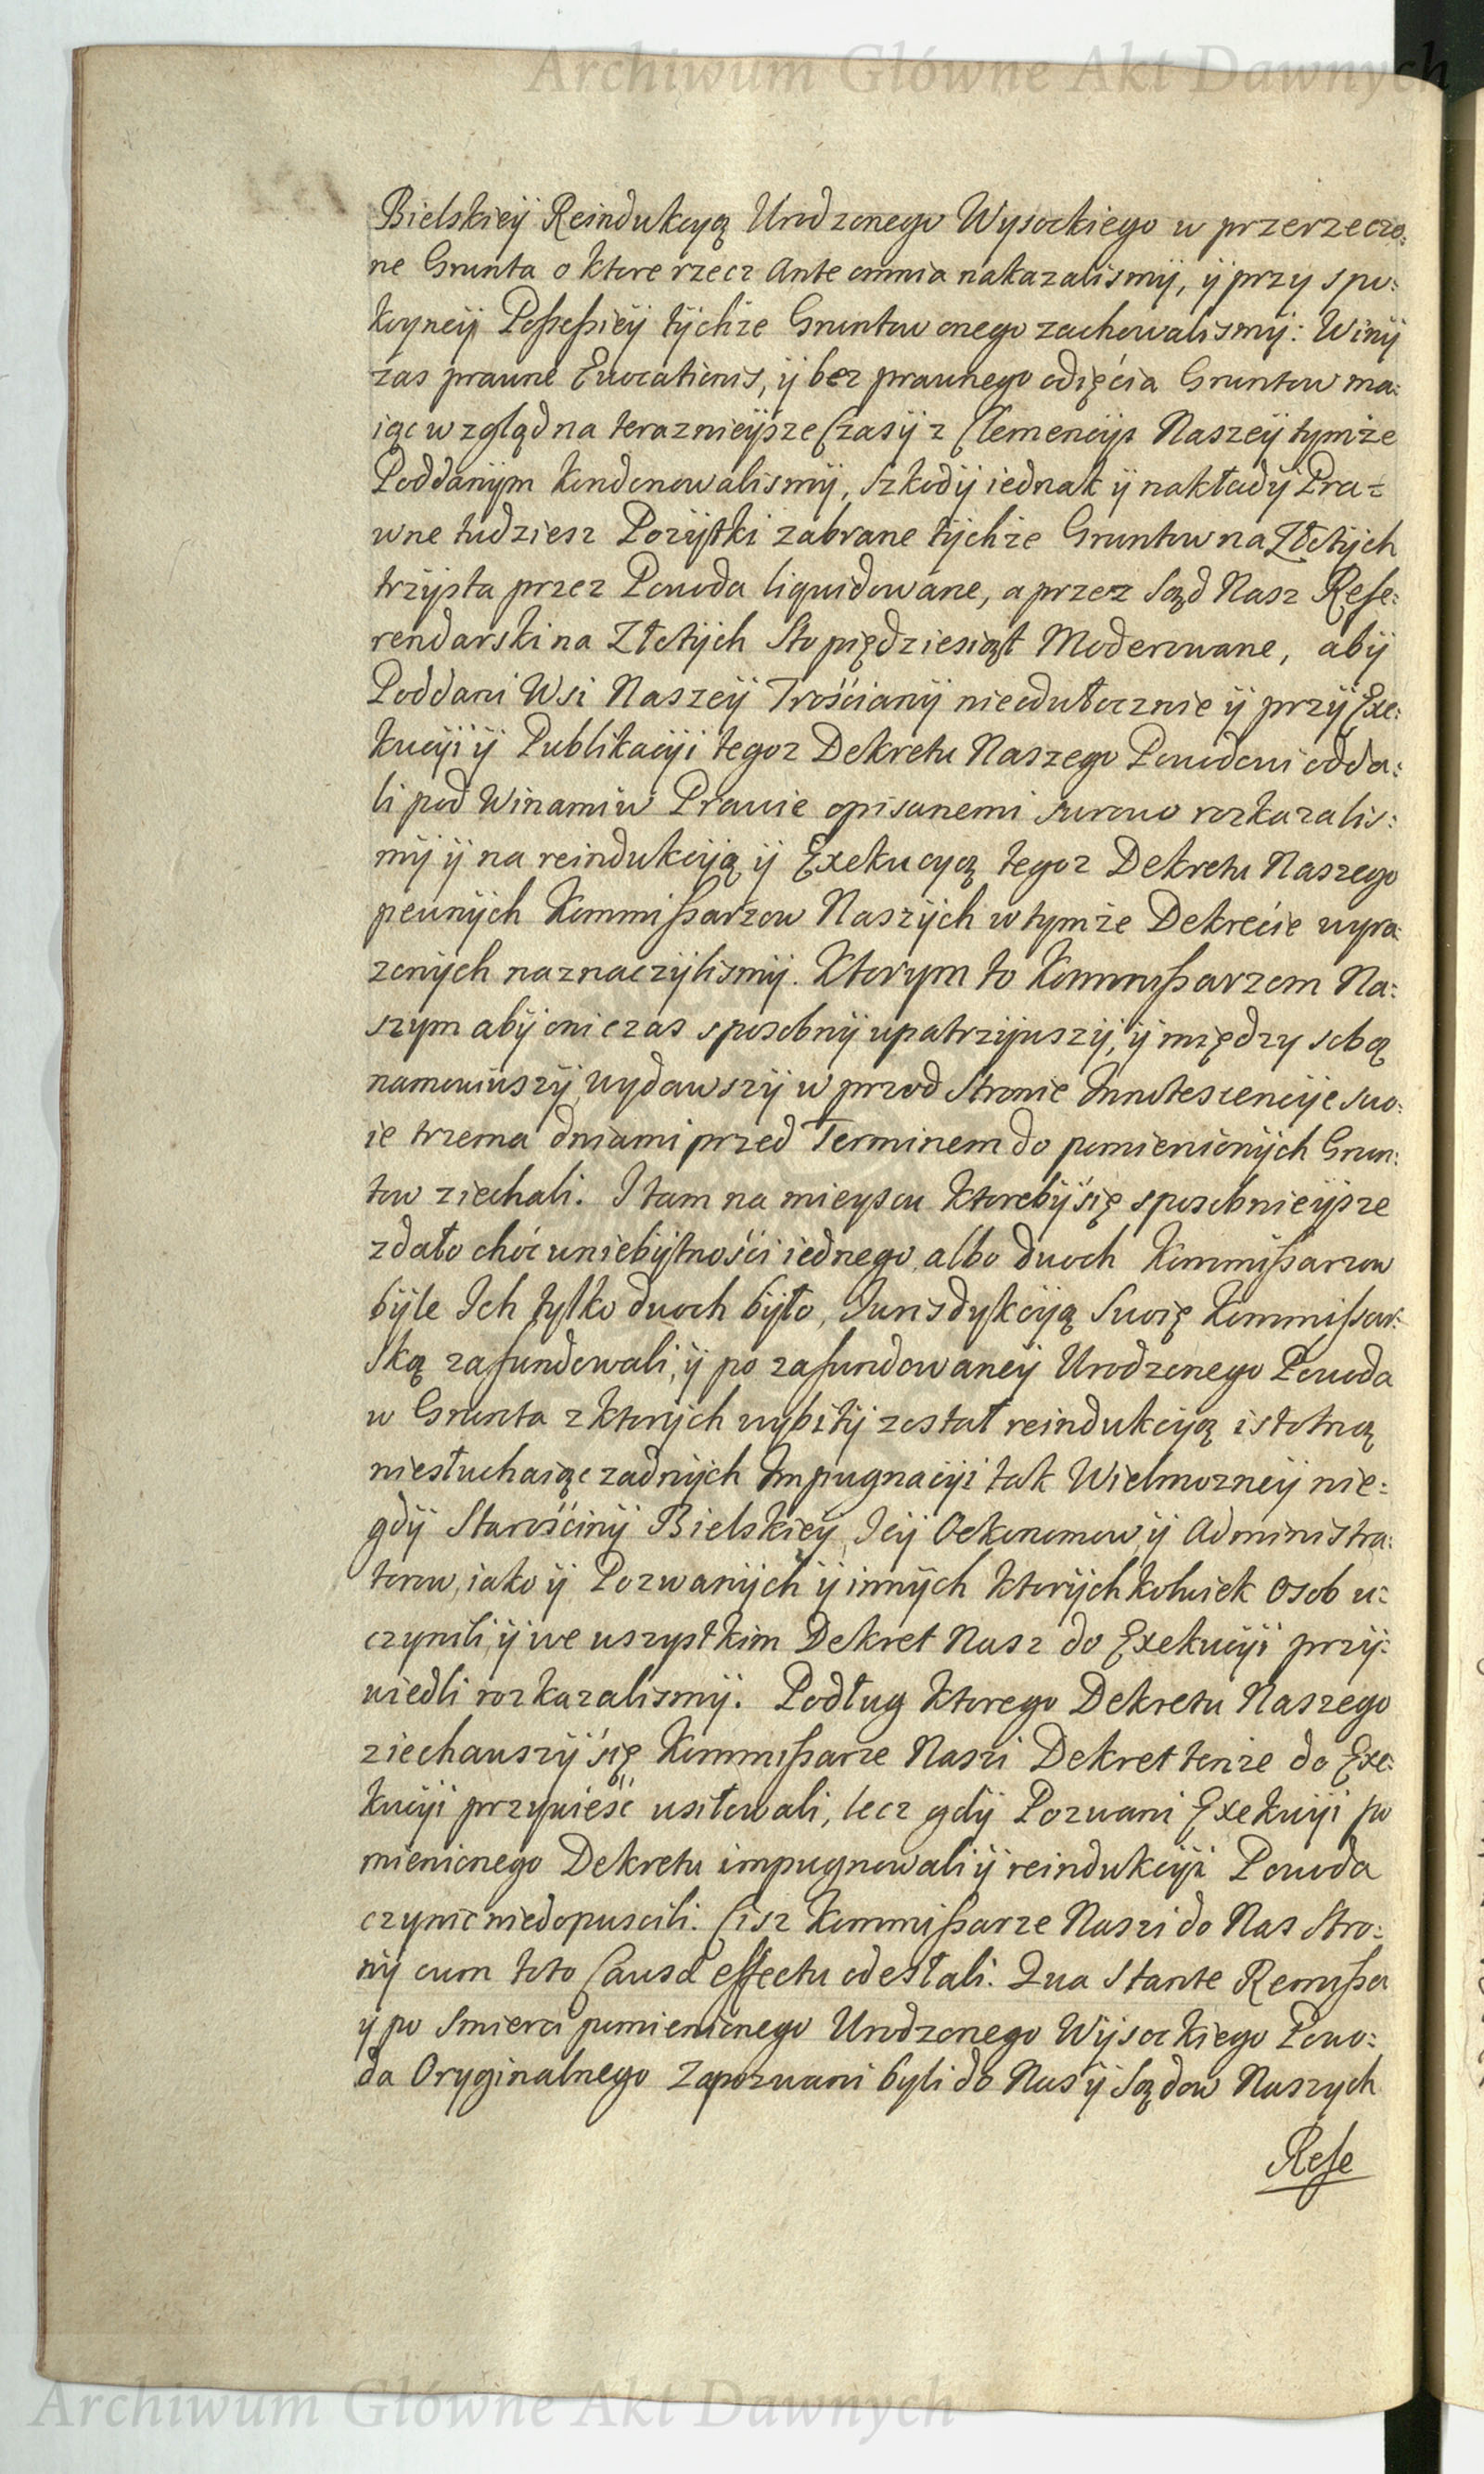 Archiwum Główne Akt Dawnych
Bielskieÿ Reindukcyą Urodzonego Wysockiego w przerzeczo:
ne Grunta o ktore rzecz Ante omnia nakazalismÿ, ÿ przy spo:
koyneÿ Possessieÿ tÿchże Gruntow onego zachowalismÿ: Winÿ
zas prawne Evocationis, ÿ bez prawnego odięcia Gruntow ma:
iąc wzgląd na teraznieÿsze Czasÿ z Clemencÿi Naszeÿ tymże
Poddanÿm kondonowalismÿ, szkodÿ iednak ÿ nakładÿ Pra:
wne tudziesz Pozÿtki zabrane tÿchże Gruntow na Złotÿch
trzÿsta przez Powoda liquidowane, a przez Sąd Nasz Refe:
rendarski na Złotÿch Sto pięдziesiąt Moderowane, abÿ
Poddani Wsi Naszeÿ Trościanÿ nieodwłocznie ÿ przÿ Exe:
kucÿi ÿ Publikacÿi tegoz Dekretu Naszego Powodowi odda:
li pod Winami w Prawie opisanemi surowo rozkazalis:
mÿ ÿ na reindukcÿą ÿ Exekucyą tegoz Dekretu Naszego
pewnÿch Kommissarzow Naszÿch w tymże Dekrecie wyra:
zonÿch naznaczÿlismÿ. Ktorym to Kommissarzom Na:
szym abÿ oni czas sposobnÿ upatrzÿwszÿ, ÿ między sobą
namowiwszÿ, wydawszÿ w przod Stronie Innotescencÿe swo:
ie trzema dniami przed Terminem do pomienionÿch Grun:
tow ziechali. I tam na mieyscu ktorebÿ się sposobnieÿsze
zdało choć w niebÿtności iednego albo dwoch Kommissarzow
bÿle Ich tylko dwoch bÿło, Jurisdykcÿą Swoię Kommissar:
ską zafundowali, ÿ po zafundowaneÿ Urodzonego Powoda
w Grunta z ktorÿch wybitÿ został reindukcÿą istotną
niesłuchaiąc zadnÿch Impugnacÿi tak Wielmozneÿ nie:
gdÿ Starościnÿ Bielskieÿ, Ieÿ Oekonomow, ÿ Administra:
torow, iako ÿ Pozwanÿch ÿ innÿch ktorÿchkolwiek osob u:
czynili, ÿ we wszystkim Dekret Nasz do Exekucÿi przÿ:
wiedli rozkazalismÿ. Podług ktorego Dekretu Naszego
ziechawszÿ się Kommissarze Naszi Dekret tenże do Exe:
kucÿi przywieść usiłowali, lecz gdÿ Pozwani Exekucÿi po
mienionego Dekretu impugnowali ÿ reindukcÿi Powoda
czynić niedopuscili. Cisz Kommissarze Naszi do Nas Stro:
nÿ cum toto Causæ effectu odesłali. Qua Stante Remissa
ÿ po Smierci pomienionego Urodzonego Wÿsockiego Powo:
da Oryginalnego Zapozwani byli do Nas ÿ Sądow Naszych
Refe
Archiwum Główne Akt Dawnych